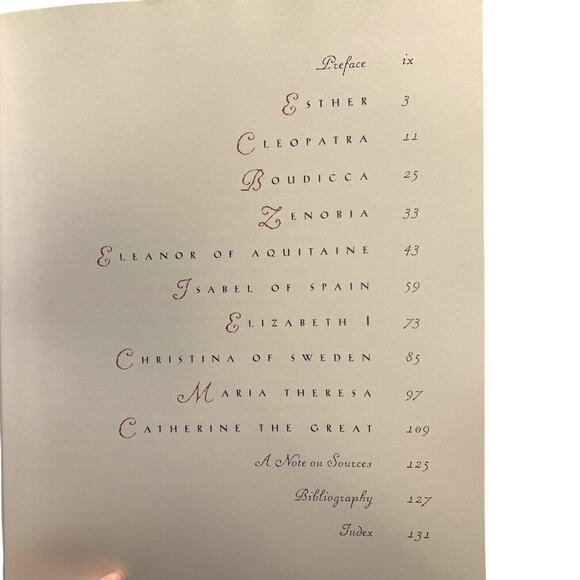 Preface ix
ESTHER 3
CLEOPATRA 11
BOUDICCA 25
ZENOBIA 33
ELEANOR OF AQUITAINE 43
ISABEL OF SPAIN 59
ELIZABETH I 73
CHRISTINA OF SWEDEN 85
MARIA THERESA 97
CATHERINE THE GREAT 109
A Note on Sources 125
Bibliography 127
Index 131